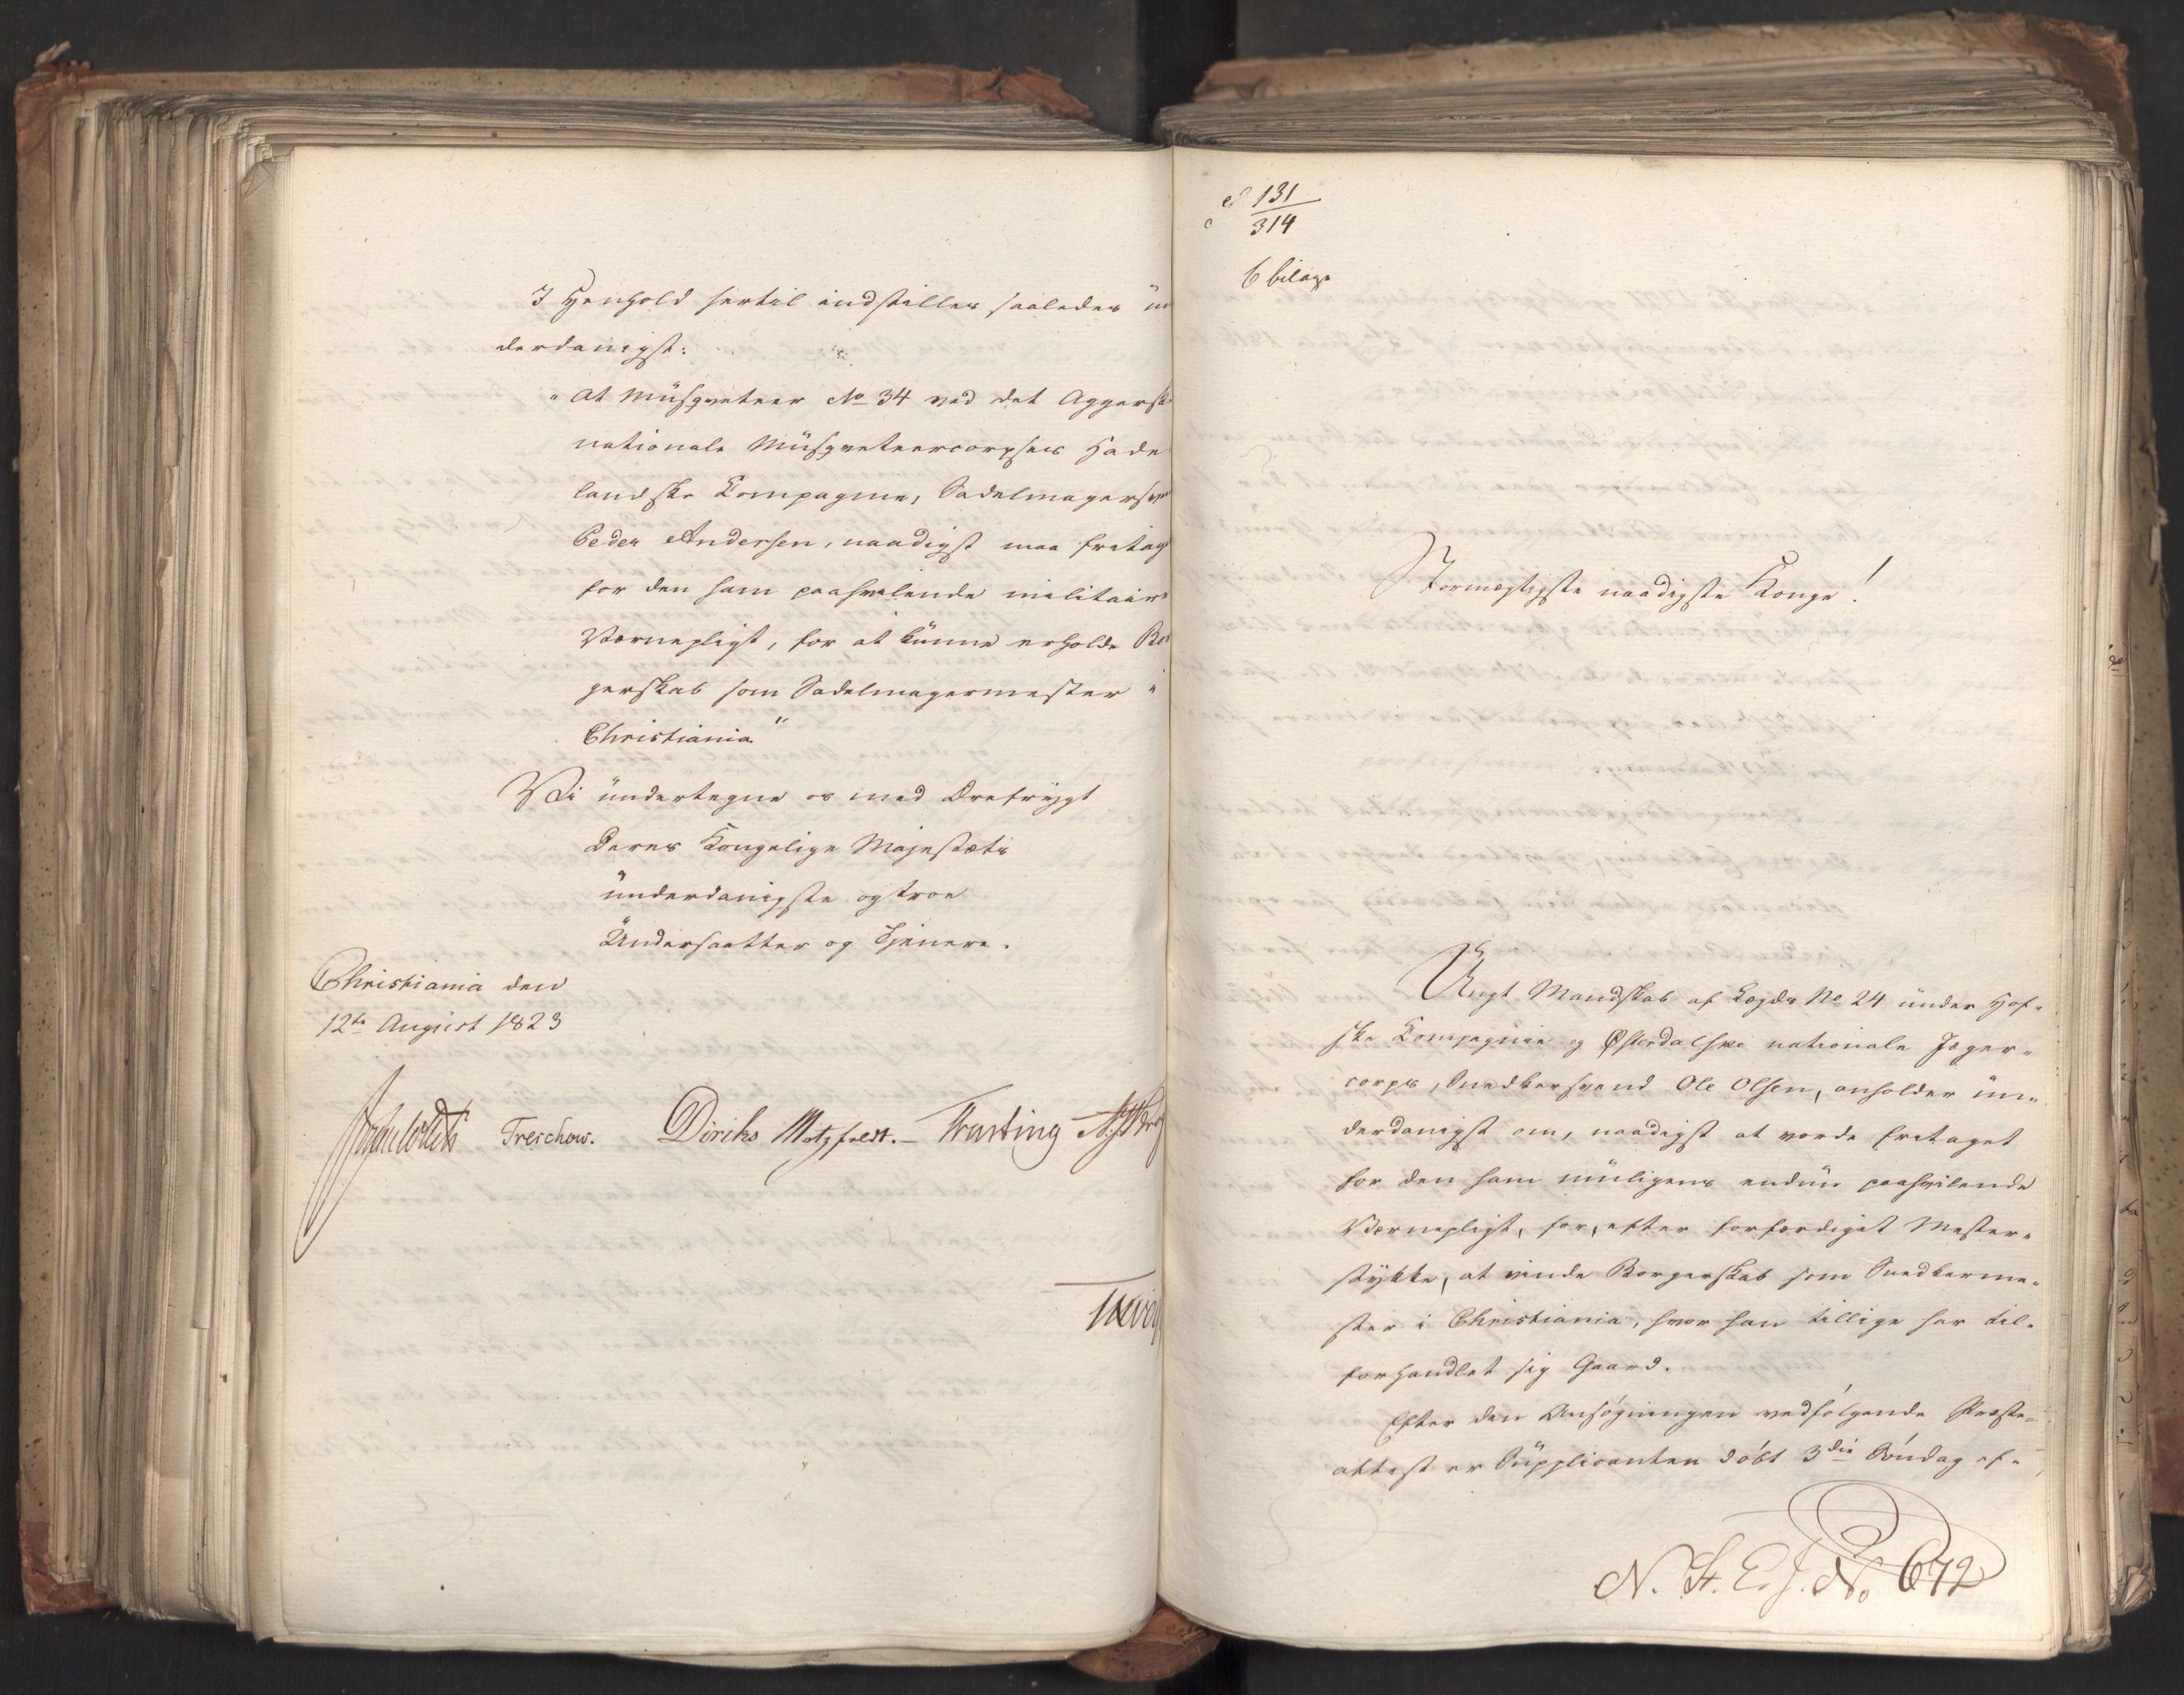 I Henhold hertil indstilles saaledes un
derdanigst:
"At Musqueteer No 34 ved det Aggersh
nationale Musqueteercorpses Hade
landske Compagnie, Sadelmagersv
Peder Andersen, naadigst maa fritag
for den ham paahvilende militair
Værnepligt, for at kunne erholde Bor
gerskab som Sadelmagermester i
Christiania"
Vi undertegne os med Ærefrygt
Deres Kongelige Majestæts
underdanigste og troe
Undersaatter og Tjenere.
Christiania den
12te August 1823
Treschow. Diriks Motzfeldt.
131
314
6 bilage
Stormægtigste naadigste Konge!
Ungt Mandskab af Lægds No 24 under Hof-
ske Compagnie og Østerdalske nationale Jæger-
corps, Snedkersvend Ole Olsen, anholder un-
derdanigst om, naadigst at vorde fritaget
for den ham muligens endnu paahvilende
Værnepligt, for, efter forfærdiget Mester-
stykke, at vinde Borgerskab som Snedkerme-
ster i Christiania, hvor han tillige har til-
forhandlet sig Gaard.
Efter den Ansøgningen vedfølgende Præste-
attest er Supplicanten døbt 3die Søndag ef-
N. St. E. J. No 672